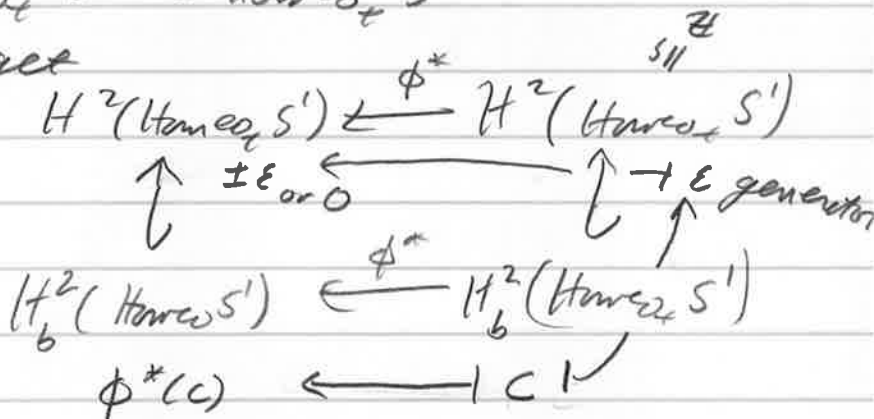 get
ℤ
≅
H²(Homeo₊ S¹) ←φ* H²(Homeo₊ S¹)
±ε or 0 ← ⊣ ε generator
H_b²(Homeo S¹) ←φ* H_b²(Homeo₊ S¹)
φ*(c) ←| c